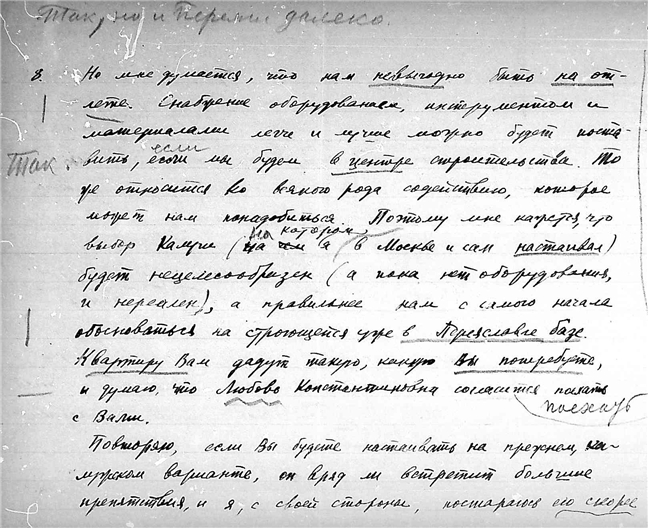 Так, но и Пермь далеко.
8. Но мне думается, что нам невыгодно быть на от-
лете. Снабжение оборудованием, инструментом и
материалами легче и лучше можно будет поста-
Так
если
вить, если мы будем в центре строительства. То
же относится ко всякого рода содействию, которое
может нам понадобиться. Поэтому мне кажется, что
на котором
выбор Калуги (на а в Москве и сам настаивал)
будет нецелесообразен (а пока нет оборудования,
и нереален), а правильнее нам с самого начала
обосноваться на строющейся уже в Переяславле базе.
Квартиру Вам дадут такую, какую Вы потребуете,
и думаю, что Любовь Константиновна согласится поехать
поехать
с Вами.
Повторяю, если Вы будете настаивать на прежнем, ка-
лужском варианте, он вряд ли встретит большие
препятствия, и я, с своей стороны, постараюсь его скорее